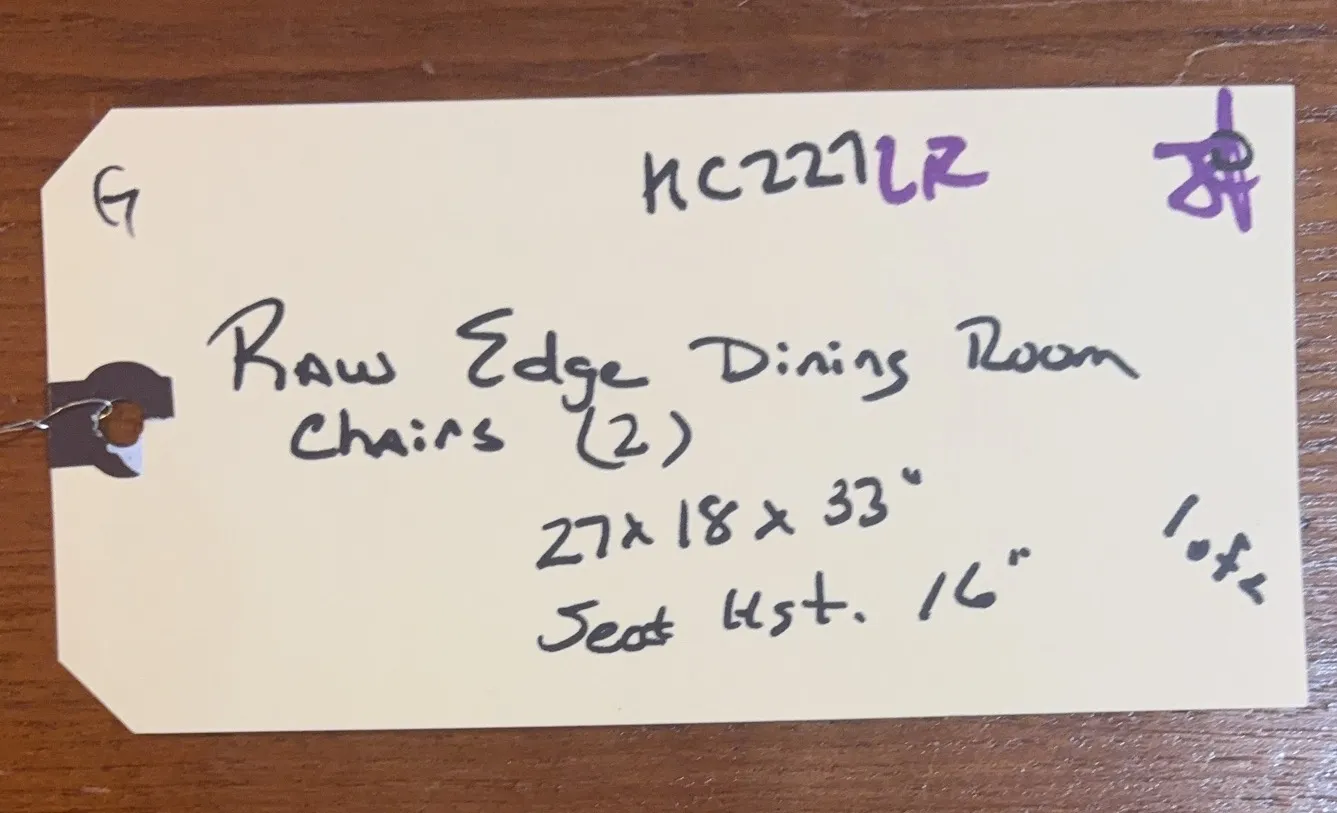 G
HC227LR
Raw Edge Dining Room
Chairs (2)
27 x 18 x 33"
Seat Hgt. 16"
1 of